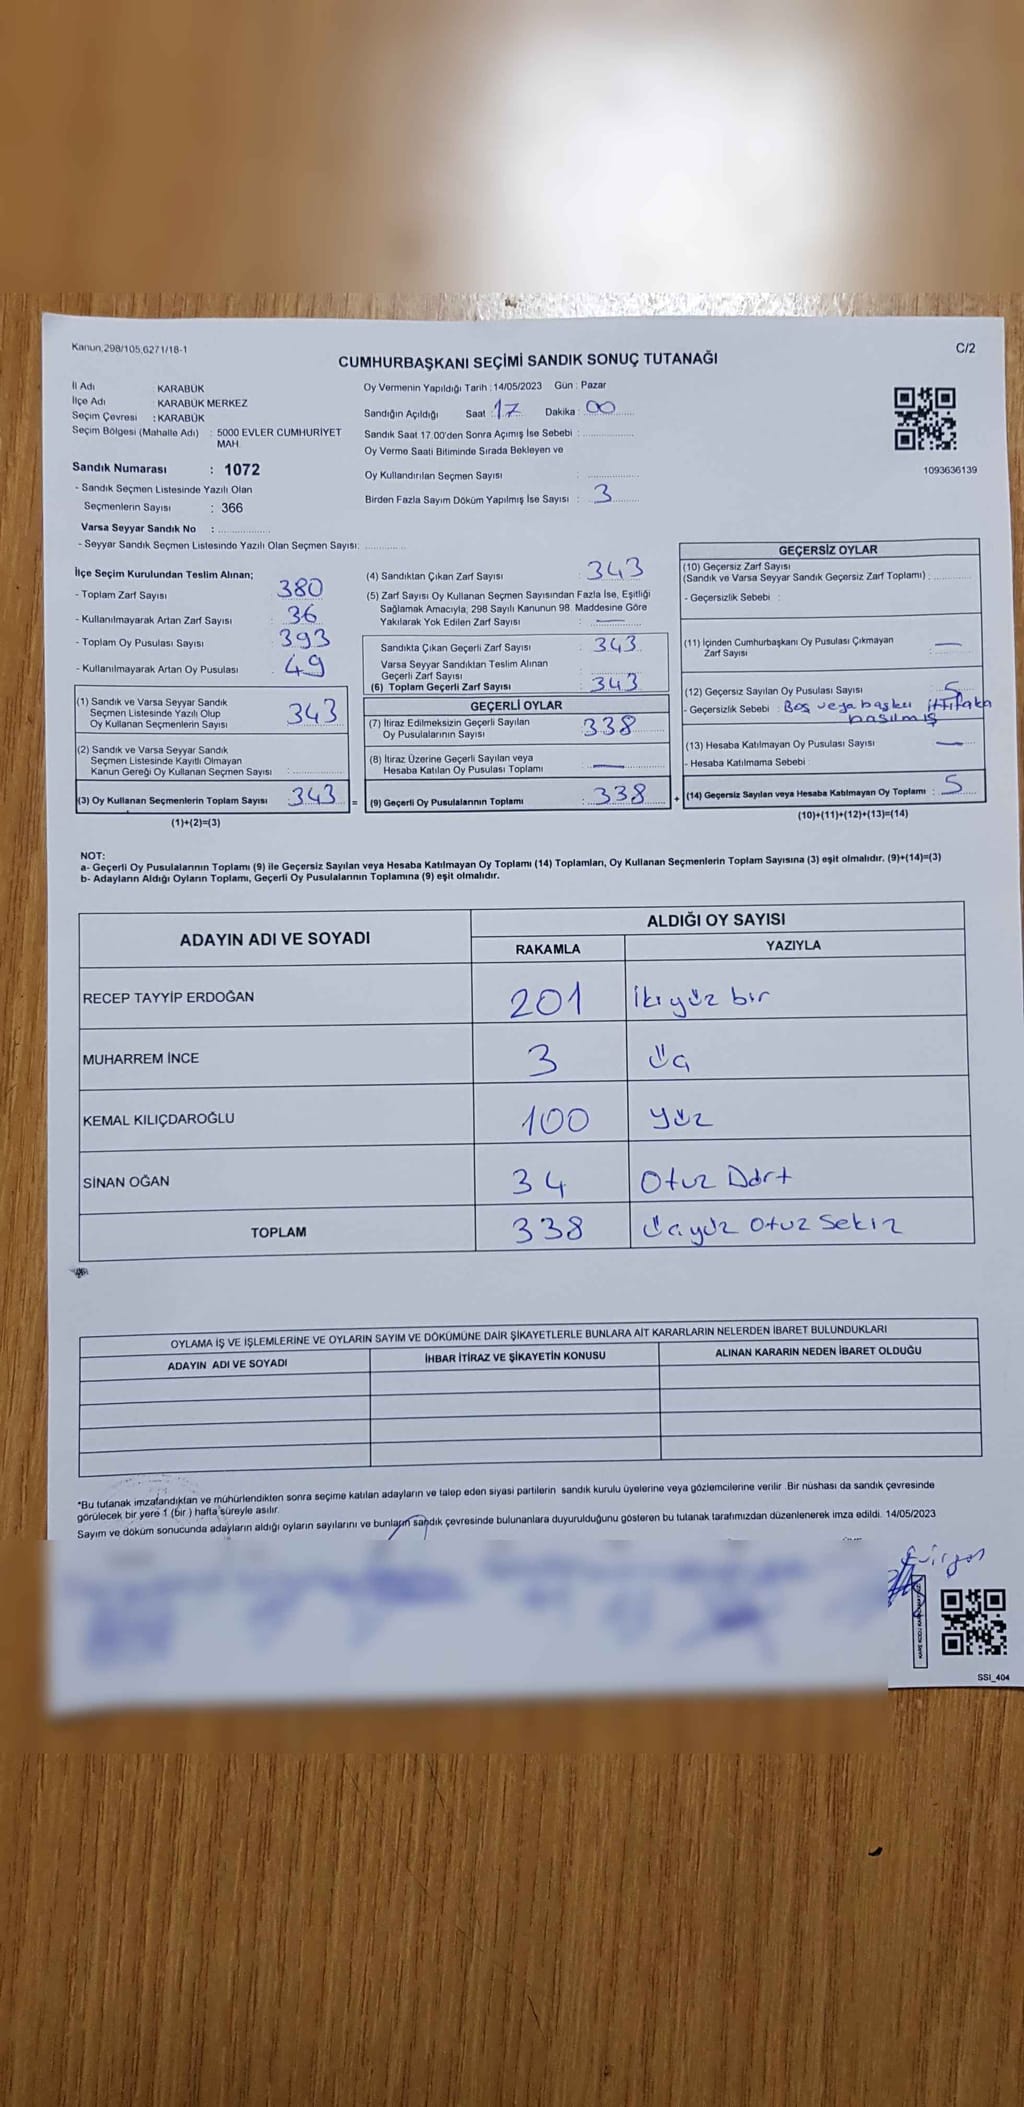 Kanun,298/105,6271/18-1
C/2
CUMHURBAŞKANI SEÇİMİ SANDIK SONUÇ TUTANAĞI
İl Adı : KARABÜK
İlçe Adı : KARABÜK MERKEZ
Seçim Çevresi : KARABÜK
Seçim Bölgesi (Mahalle Adı) : 5000 EVLER CUMHURİYET
MAH
Sandık Numarası : 1072
- Sandık Seçmen Listesinde Yazılı Olan
Seçmenlerin Sayısı : 366
Varsa Seyyar Sandık No :
- Seyyar Sandık Seçmen Listesinde Yazılı Olan Seçmen Sayısı:
Oy Vermenin Yapıldığı Tarih : 14/05/2023 Gün : Pazar
Sandığın Açıldığı Saat : 17 Dakika : 00
Sandık Saat 17.00'den Sonra Açımış İse Sebebi :
Oy Verme Saati Bitiminde Sırada Bekleyen ve
Oy Kullandırılan Seçmen Sayısı :
Birden Fazla Sayım Döküm Yapılmış İse Sayısı : 3
1093636139
İlçe Seçim Kurulundan Teslim Alınan;
- Toplam Zarf Sayısı : 380
- Kullanılmayarak Artan Zarf Sayısı : 36
- Toplam Oy Pusulası Sayısı : 393
- Kullanılmayarak Artan Oy Pusulası : 49
(1) Sandık ve Varsa Seyyar Sandık
Seçmen Listesinde Yazılı Olup
Oy Kullanan Seçmenlerin Sayısı : 343
(2) Sandık ve Varsa Seyyar Sandık
Seçmen Listesinde Kayıtlı Olmayan
Kanun Gereği Oy Kullanan Seçmen Sayısı :
(3) Oy Kullanan Seçmenlerin Toplam Sayısı : 343 =
(1)+(2)=(3)
(4) Sandıktan Çıkan Zarf Sayısı : 343
(5) Zarf Sayısı Oy Kullanan Seçmen Sayısından Fazla İse, Eşitliği
Sağlamak Amacıyla, 298 Sayılı Kanunun 98. Maddesine Göre
Yakılarak Yok Edilen Zarf Sayısı : —
Sandıkta Çıkan Geçerli Zarf Sayısı : 343
Varsa Seyyar Sandıktan Teslim Alınan
Geçerli Zarf Sayısı :
(6) Toplam Geçerli Zarf Sayısı : 343
GEÇERLİ OYLAR
(7) İtiraz Edilmeksizin Geçerli Sayılan
Oy Pusulalarının Sayısı : 338
(8) İtiraz Üzerine Geçerli Sayılan veya
Hesaba Katılan Oy Pusulası Toplamı : —
(9) Geçerli Oy Pusulalarının Toplamı : 338 +
GEÇERSİZ OYLAR
(10) Geçersiz Zarf Sayısı
(Sandık ve Varsa Seyyar Sandık Geçersiz Zarf Toplamı) :
- Geçersizlik Sebebi :
(11) İçinden Cumhurbaşkanı Oy Pusulası Çıkmayan
Zarf Sayısı : —
(12) Geçersiz Sayılan Oy Pusulası Sayısı : 5
- Geçersizlik Sebebi : Boş veya başka ittifaka
basılmış
(13) Hesaba Katılmayan Oy Pusulası Sayısı : —
- Hesaba Katılmama Sebebi :
(14) Geçersiz Sayılan veya Hesaba Katılmayan Oy Toplamı : 5
(10)+(11)+(12)+(13)=(14)
NOT:
a- Geçerli Oy Pusulalarının Toplamı (9) ile Geçersiz Sayılan veya Hesaba Katılmayan Oy Toplamı (14) Toplamları, Oy Kullanan Seçmenlerin Toplam Sayısına (3) eşit olmalıdır. (9)+(14)=(3)
b- Adayların Aldığı Oyların Toplamı, Geçerli Oy Pusulalarının Toplamına (9) eşit olmalıdır.
ADAYIN ADI VE SOYADI
ALDIĞI OY SAYISI
RAKAMLA YAZIYLA
RECEP TAYYİP ERDOĞAN 201 İkiyüz bir
MUHARREM İNCE 3 Üç
KEMAL KILIÇDAROĞLU 100 Yüz
SİNAN OĞAN 34 Otuz Dört
TOPLAM 338 Üçyüz Otuz Sekiz
OYLAMA İŞ VE İŞLEMLERİNE VE OYLARIN SAYIM VE DÖKÜMÜNE DAİR ŞİKAYETLERLE BUNLARA AİT KARARLARIN NELERDEN İBARET BULUNDUKLARI
ADAYIN ADI VE SOYADI İHBAR İTİRAZ VE ŞİKAYETİN KONUSU ALINAN KARARIN NEDEN İBARET OLDUĞU
*Bu tutanak imzalandıktan ve mühürlendikten sonra seçime katılan adayların ve talep eden siyasi partilerin sandık kurulu üyelerine veya gözlemcilerine verilir. Bir nüshası da sandık çevresinde
görülecek bir yere 1 (bir) hafta süreyle asılır.
Sayım ve döküm sonucunda adayların aldığı oyların sayılarını ve bunların sandık çevresinde bulunanlara duyurulduğunu gösteren bu tutanak tarafımızdan düzenlenerek imza edildi. 14/05/2023
SSI_404